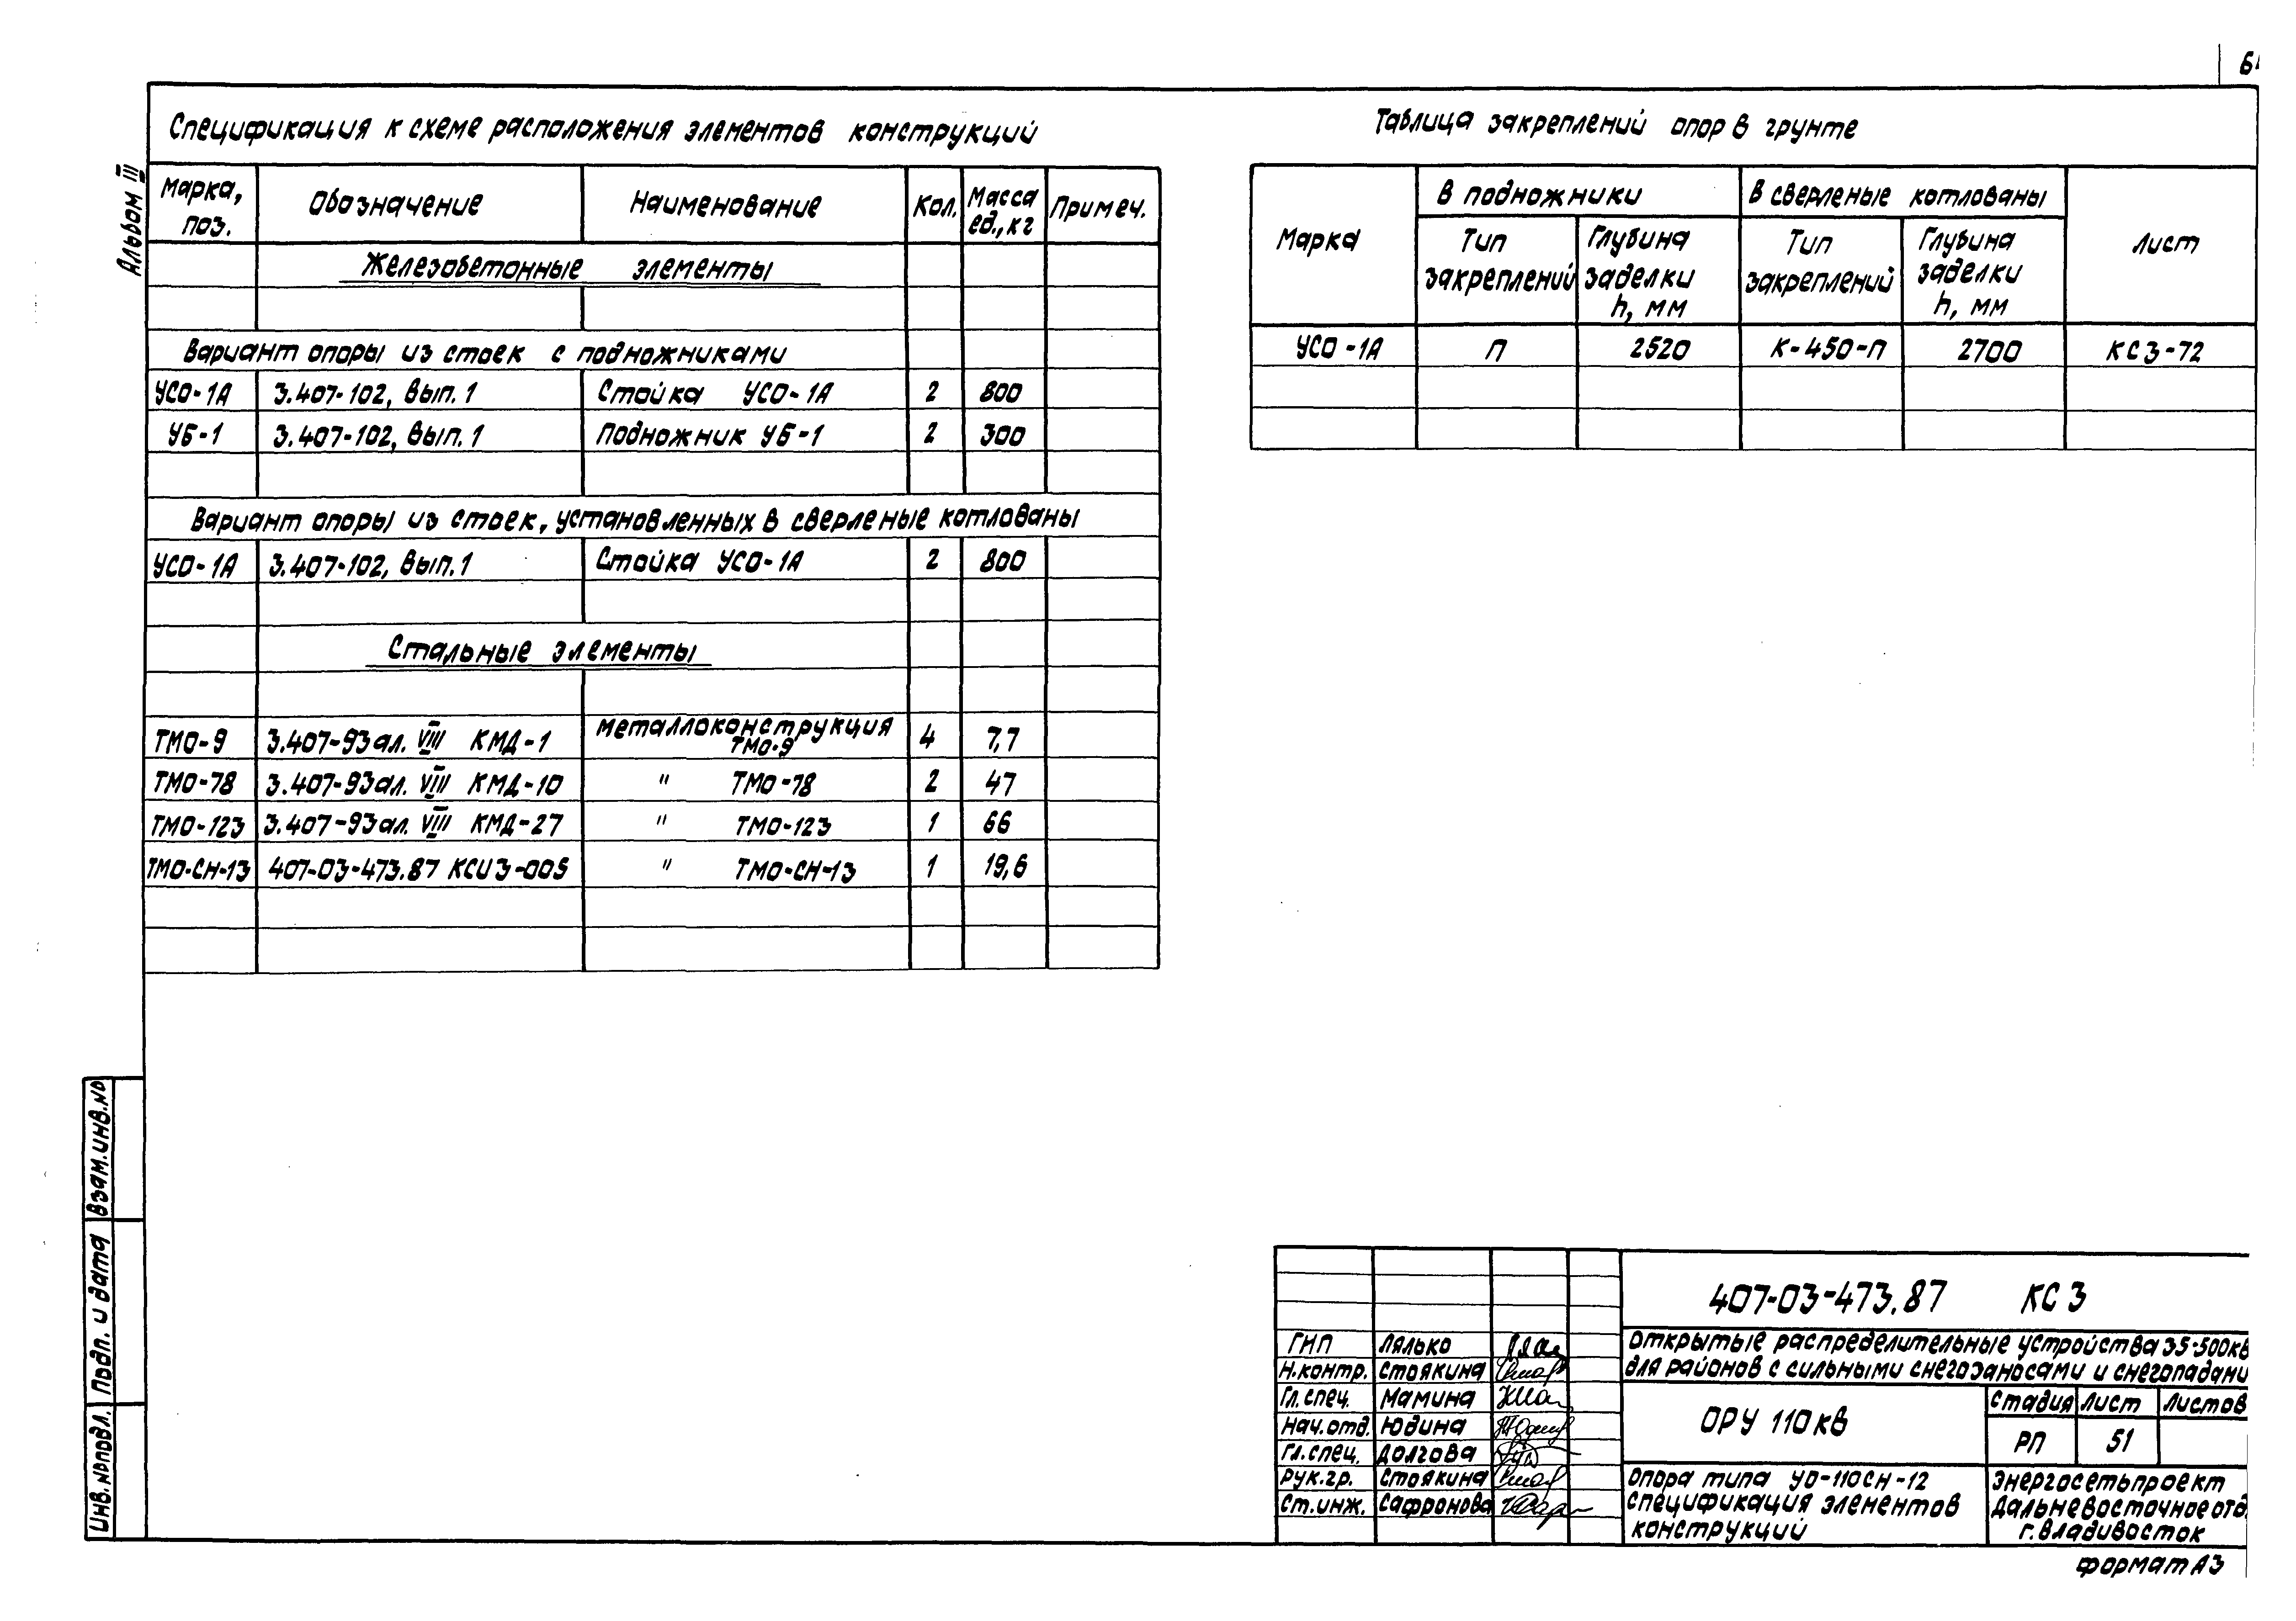 Альбом III
Спецификация к схеме расположения элементов конструкций
Марка, поз. Обозначение Наименование Кол. Масса ед., кг Примеч.
Железобетонные элементы
Вариант опоры из стоек с подножниками
УСО-1А 3.407-102, вып.1 Стойка УСО-1А 2 800
УБ-1 3.407-102, вып.1 Подножник УБ-1 2 300
Вариант опоры из стоек, установленных в сверленые котлованы
УСО-1А 3.407-102, вып.1 Стойка УСО-1А 2 800
Стальные элементы
ТМО-9 3.407-93 ал. VIII КМД-1 Металлоконструкция ТМО-9 4 7,7
ТМО-78 3.407-93 ал. VIII КМД-10 " ТМО-78 2 47
ТМО-123 3.407-93 ал. VIII КМД-27 " ТМО-123 1 66
ТМО-СН-13 407-03-473.87 КСИ3-005 " ТМО-СН-13 1 19,6
Таблица закреплений опор в грунте
Марка В подножники В сверленые котлованы Лист
Тип закреплений Глубина заделки h, мм Тип закреплений Глубина заделки h, мм
УСО-1А П 2520 К-450-П 2700 КС3-72
Взам. инв. №
Подп. и дата
Инв. № подл.
407-03-473.87 КС3
ГИП Лялько
Н.контр. Стоякина
Гл. спец. Мамина
Нач. отд. Юдина
Гл. спец. Долгова
Рук. гр. Стоякина
Ст. инж. Сафронова
Открытые распределительные устройства 35-500кВ
для районов с сильными снегозаносами и снегопадами
ОРУ 110 кВ
Стадия Лист Листов
РП 51
Опора типа УО-110СН-12
Спецификация элементов
конструкций
Энергосетьпроект
Дальневосточное отд.
г. Владивосток
Формат А3